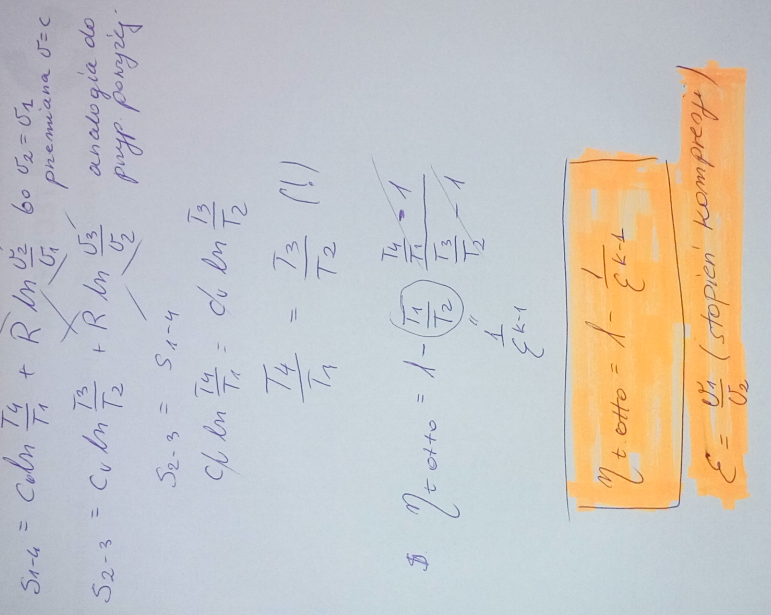 S1-4 = Cv ln T4/T1 + R ln v2/v1 bo v2 = v1
przemiana v=c
S2-3 = Cv ln T3/T2 + R ln v3/v2 analogia do
przyp. powyżej.
S2-3 = S1-4
Cv ln T4/T1 = Cv ln T3/T2
T4/T1 = T3/T2 (!)
ηt otto = 1 - T1/T2 (T4/T1 - 1)/(T3/T2 - 1)
" 1/ε^k-1
ηt otto = 1 - 1/ε^k-1
ε = v1/v2 (stopień kompresji)